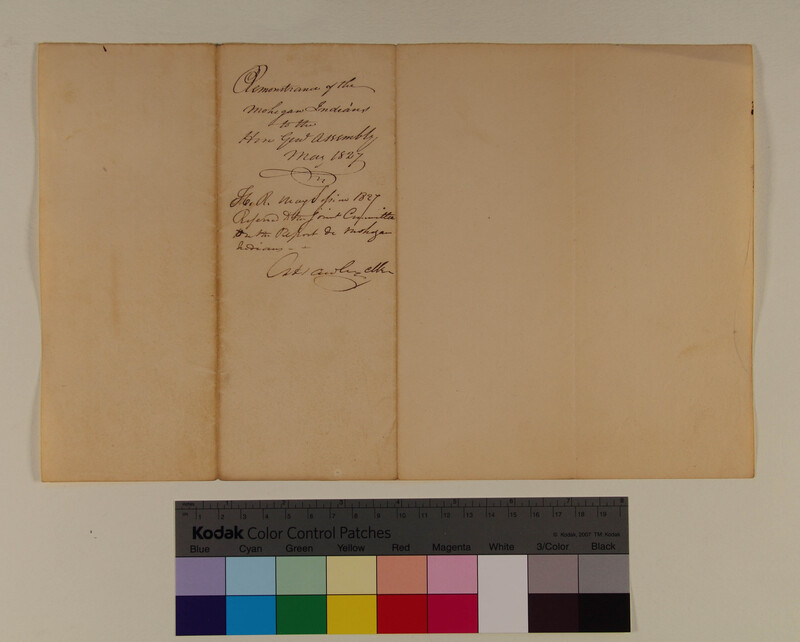 Remonstrance of the
Mohegan Indians
to the
Hon Genl Assembly
May 1827
H. R. May 1827
Referd to the Joint Committee
on the Report Mohegan
Indians
Clk
1 2 3 4 5 6 7 8
1 2 3 4 5 6 7 8 9 10 11 12 13 14 15 16 17 18 19
Kodak Color Control Patches
© Kodak, 2007 TM: Kodak
Blue Cyan Green Yellow Red Magenta White 3/Color Black